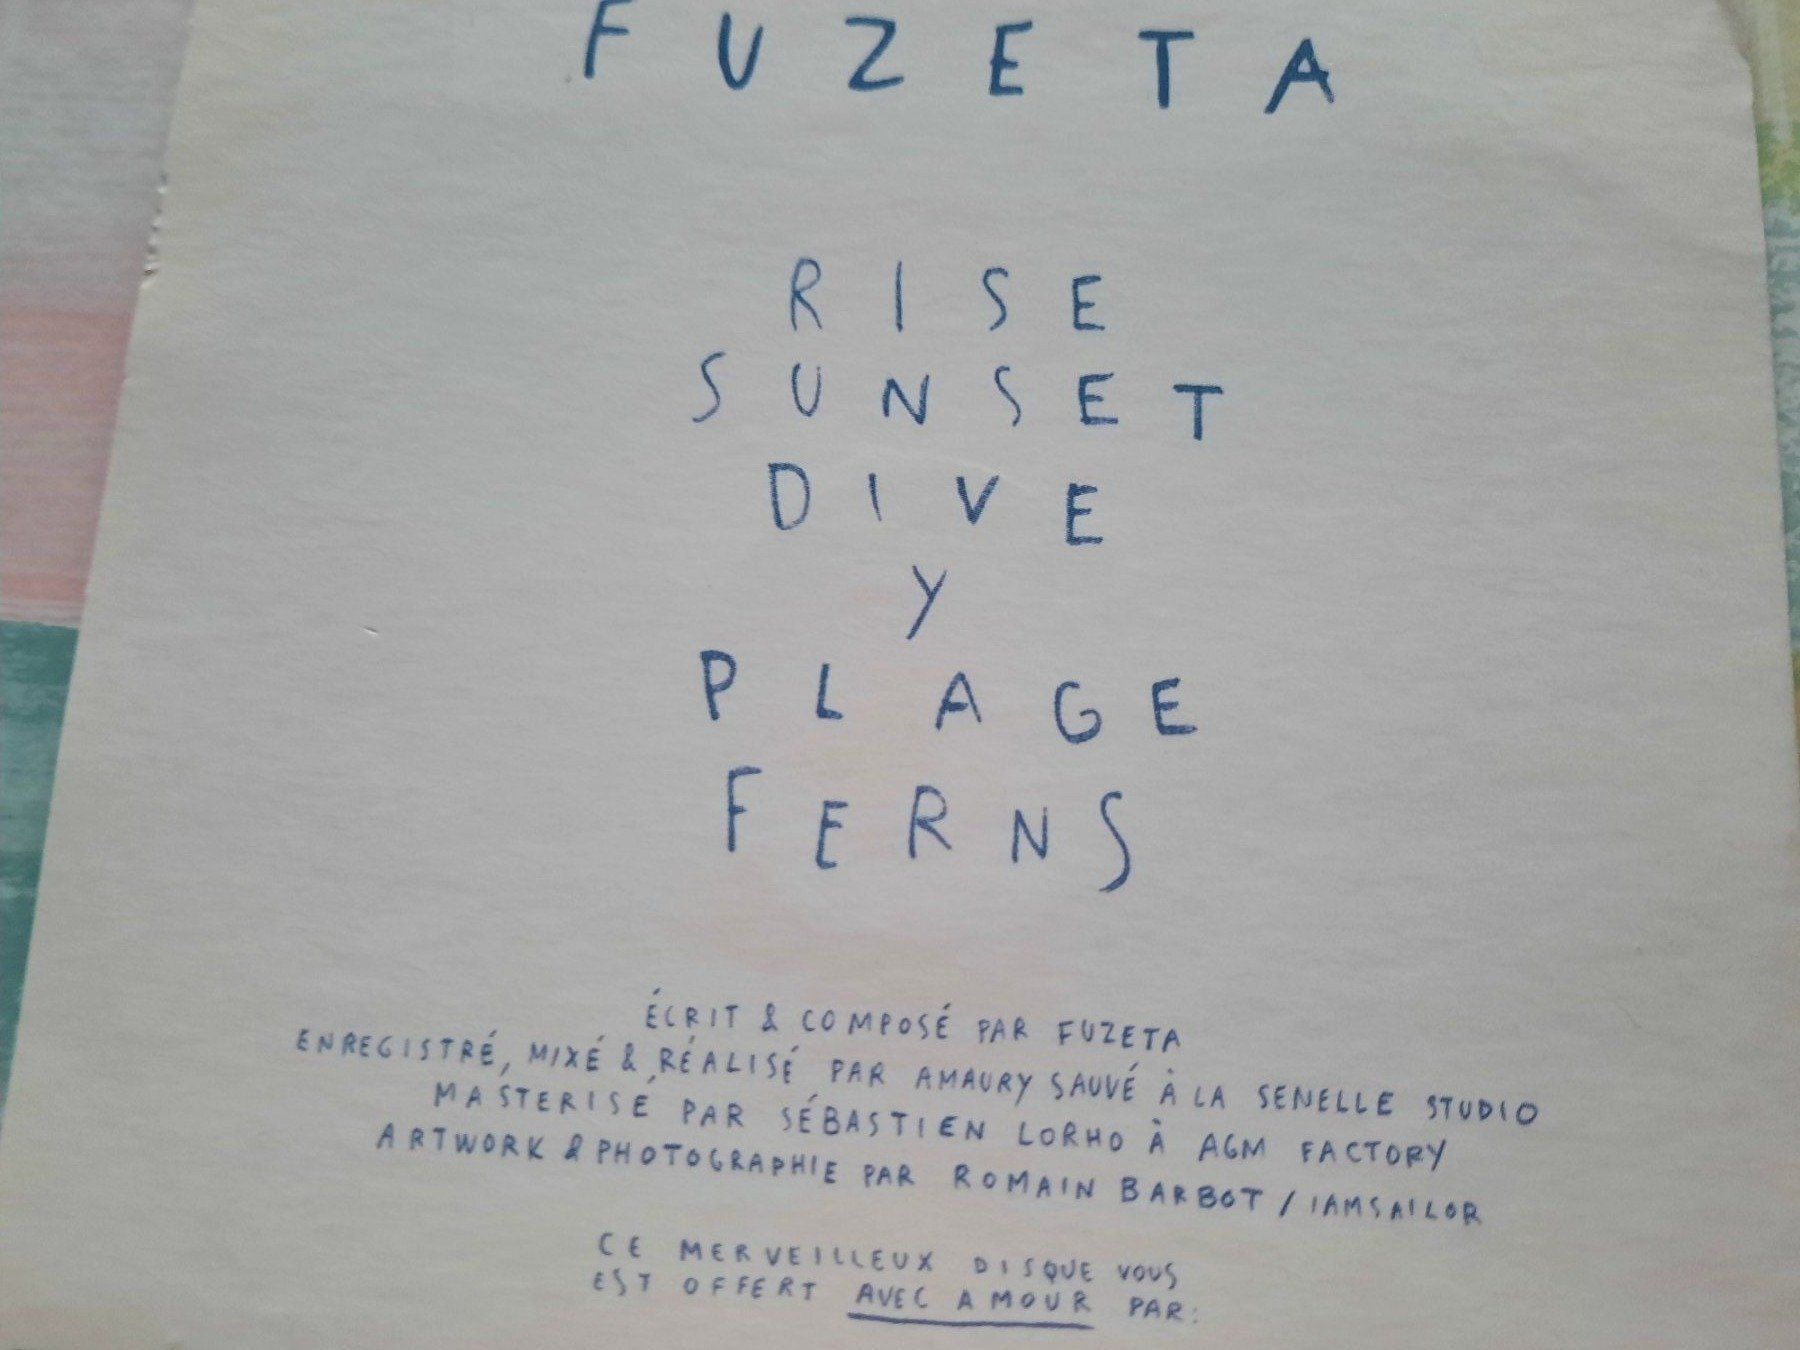 FUZETA
RISE
SUNSET
DIVE
Y
PLAGE
FERNS
ÉCRIT & COMPOSÉ PAR FUZETA
ENREGISTRÉ, MIXÉ & RÉALISÉ PAR AMAURY SAUVÉ À LA SENELLE STUDIO
MASTERISÉ PAR SÉBASTIEN LORHO À AGM FACTORY
ARTWORK & PHOTOGRAPHIE PAR ROMAIN BARBOT / IAMSAILOR
CE MERVEILLEUX DISQUE VOUS
EST OFFERT AVEC AMOUR PAR: